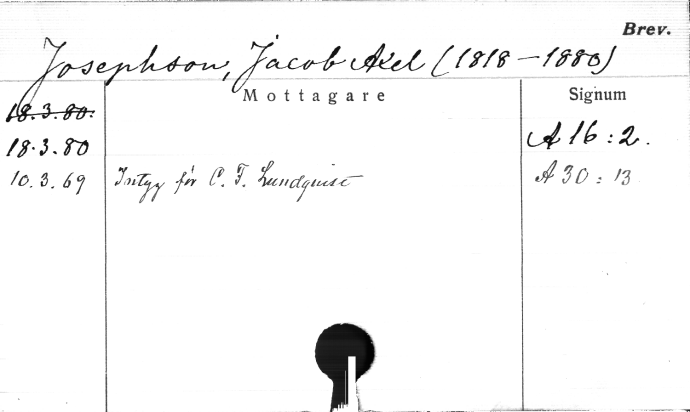 Brev.
Josephson, Jacob Axel (1818-1880)
Mottagare Signum
18.3.80.
18.3.80 A 16:2.
10.3.69 Intyg för C. F. Lundquist A 30:13